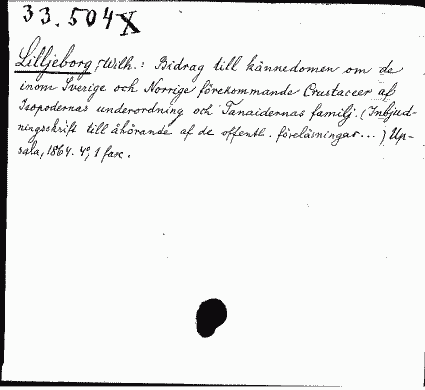 33.504 X
Lilljeborg, Wilh.: Bidrag till kännedomen om de
inom Sverige och Norrige förekommande Crustaceer af
Isopodernas underordning och Tanaidernas familj. (Inbjud-
ningsskrift till åhörande af de offentl. föreläsningar...) Up-
sala, 1864. 4°, 1 fasc.